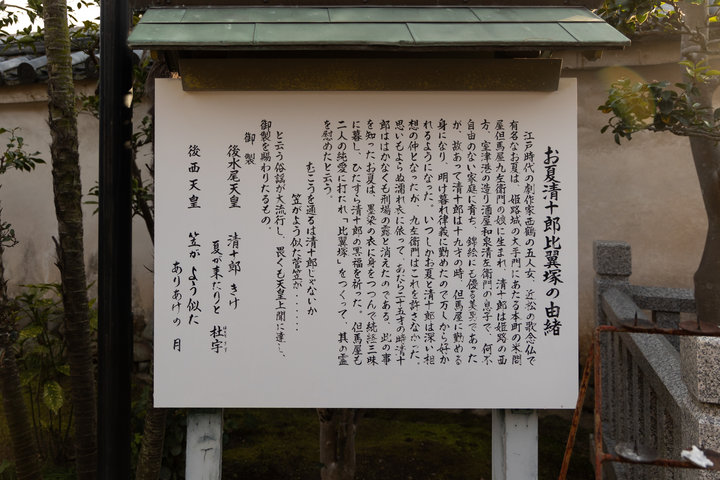 お夏清十郎比翼塚の由緒
江戸時代の劇作家西鶴の五人女、近松の歌念仏で
有名なお夏は、姫路城の大手門にあたる本町の米問
屋但馬屋九左衛門の娘に生まれ、清十郎は姫路の西
方、室津港の造り酒屋和泉清左衛門の息子で、何不
自由のない家庭に育ち、錦絵にも優る美男であった
が、故あって清十郎は十九才の時、但馬屋に勤める
身になり、明け暮れ律義に勤めたので万人から好か
れるようになった。いつしかお夏と清十郎は深い相
想の仲となったが、九左衛門はこれを許さなかった。
思いもよらぬ濡れ衣に依って、あたら二十五才の時清十
郎ははかなくも刑場の露と消えたのである。此の事
を知ったお夏は、墨染の衣に身をつつんで読経三昧
に暮し、ひたすら清十郎の冥福を祈った。但馬屋も
二人の純愛に打たれ「比翼塚」をつくって、其の霊
を慰めたと云う。
むこうを通るは清十郎じゃないか
笠がよう似た菅笠が・・・・・
と云う俗謡が大流行し、畏くも天皇上聞に達し、
御製を賜わりたるもの。
御製
後水尾天皇 清十郎 きけ
夏が来たりと 杜宇
ほととぎす
後西天皇 笠が よう似た
ありあけの 月